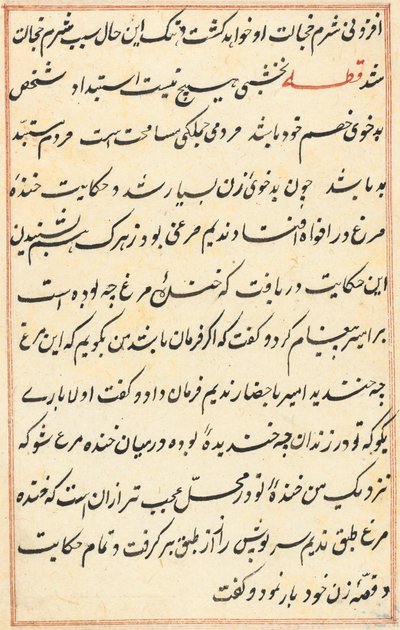 افزونی شرم خجالت او خواهد گشت و هتک این حال سبب شرم خجالت
شد قطعه نخشبی هیچ نیست استبداد شخص
بدخوی خصم خود باشد مردمی جملگی مسامحت است مردم مستبد
بد باشد چون بدخوئ زن بسیار شد و حکایت خندهٔ
مرغ در افواه افتاد ندیم مرغی بود زیرک بشنیدن
این حکایت دریافت که خندهٔ مرغ چه بوده است
بر امیر پیغام کرد و گفت که اگر فرمان باشد من بگویم که این مرغ
چه خندید امیر باحضار ندیم فرمان داد و گفت اولا بارے
بگو که تو در زندان چه خندیدهٔ بوده درمیان خنده مرغ شو که
نزدیک من خندهٔ تو در محل عجب تر ازان است که خنده
مرغ طبق ندیم سرپوش راز از طبق برگرفت و تمام حکایت
و قصّهٔ زن خود باز نمود و گفت